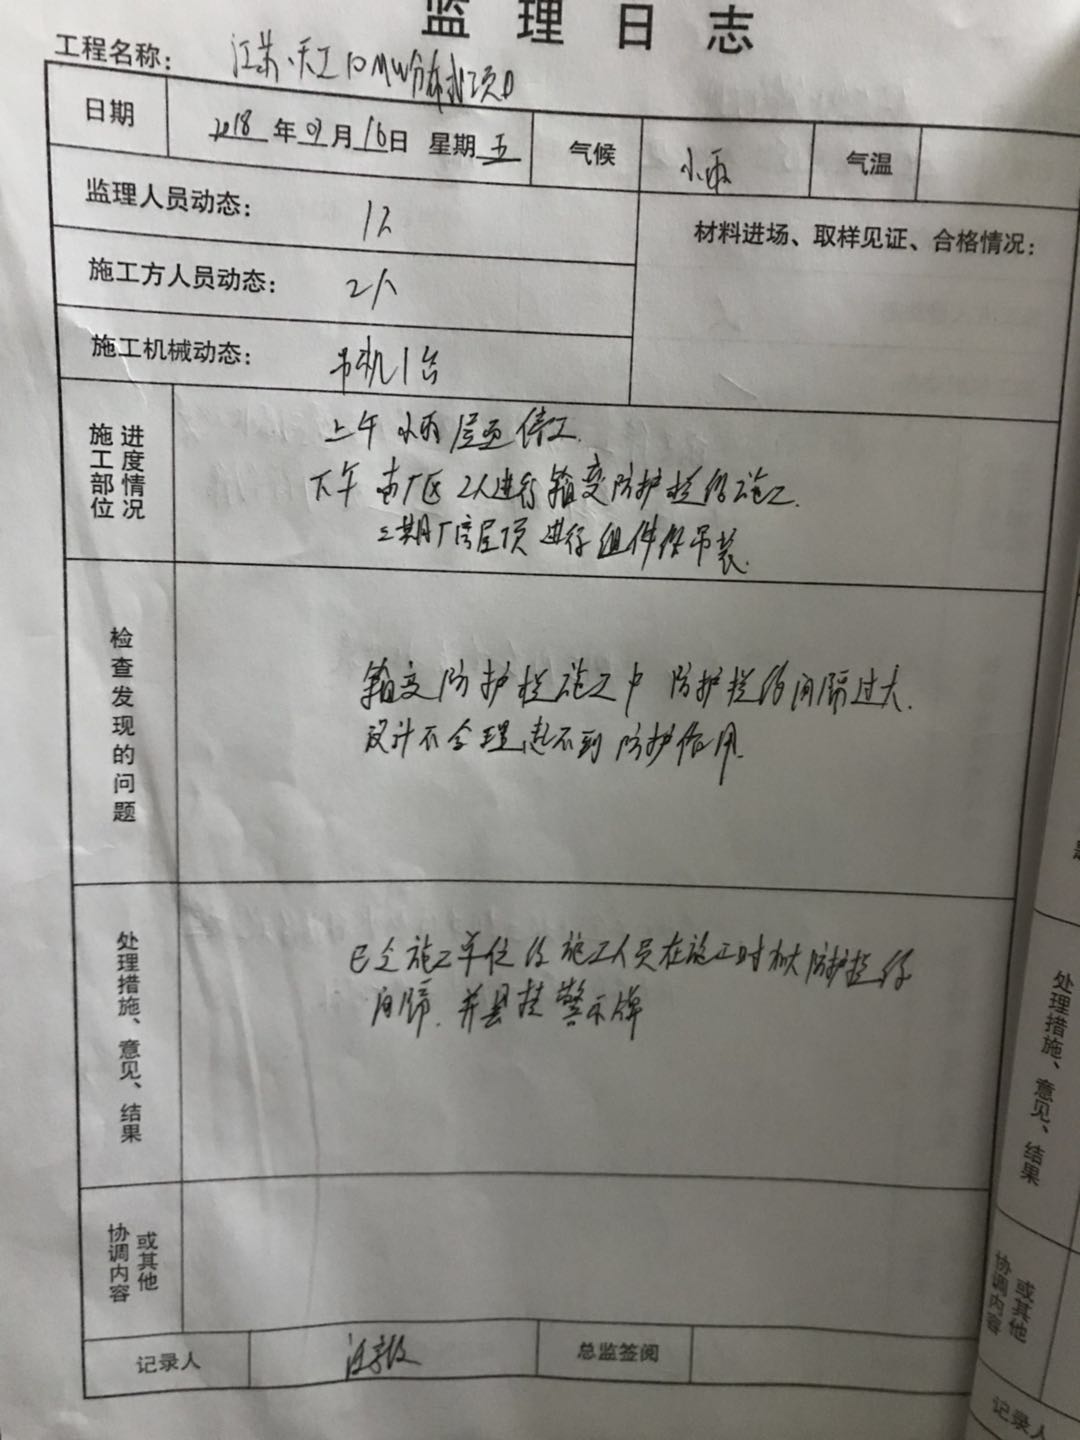 监理日志
工程名称: 江苏·天工10MW分布式项目
日期 2018年0月16日 星期五 气候 小雨 气温
监理人员动态: 1人
材料进场、取样见证、合格情况:
施工方人员动态: 2人
施工机械动态: 吊机1台
施工部位 进度情况
上午 小雨 屋面停工.
下午 南厂区 2人进行箱变防护栏的施工.
三期厂房屋顶 进行组件的吊装.
检查发现的问题
箱变防护栏施工中 防护栏的间隔过大.
设计不合理起不到防护作用.
处理措施、意见、结果
已令施工单位的施工人员在施工时加大防护栏的
间隔. 并悬挂警示牌
协调内容 或其他
记录人 总监签阅
处理措施、意见、结果
协调内容 或其他
记录人